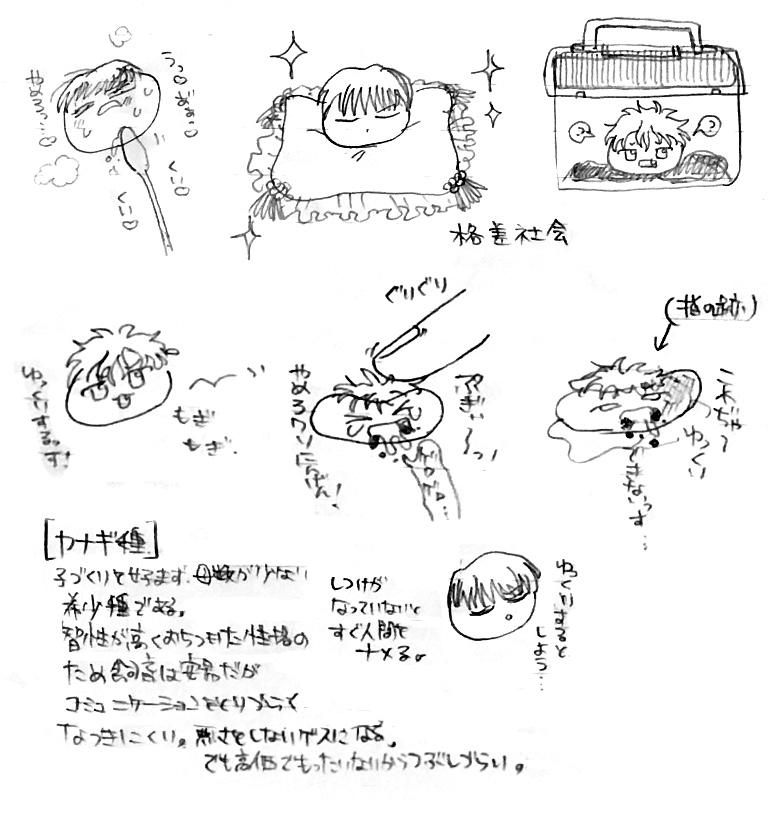 うっ♡
くい♡
くい♡
格差社会
ゆっくりするっす!
もぎ
もぎ
ぐりぐり
やめろクソにんげん!
(指の跡)
これぢゃ〜
ゆっくい
できないっす…
[カナギ種]
子づくりを好まず、母数が少ない
希少種である。
智性が高くおちついた性格の
ため飼育は容易だが
コミュニケーションをとりづらく
なつきにくい。悪さをしないゲスになる。
でも高価でもったいないからつぶしづらい。
しつけが
なっていないと
すぐ人間を
ナメる。
ゆっくりすると
しよう…